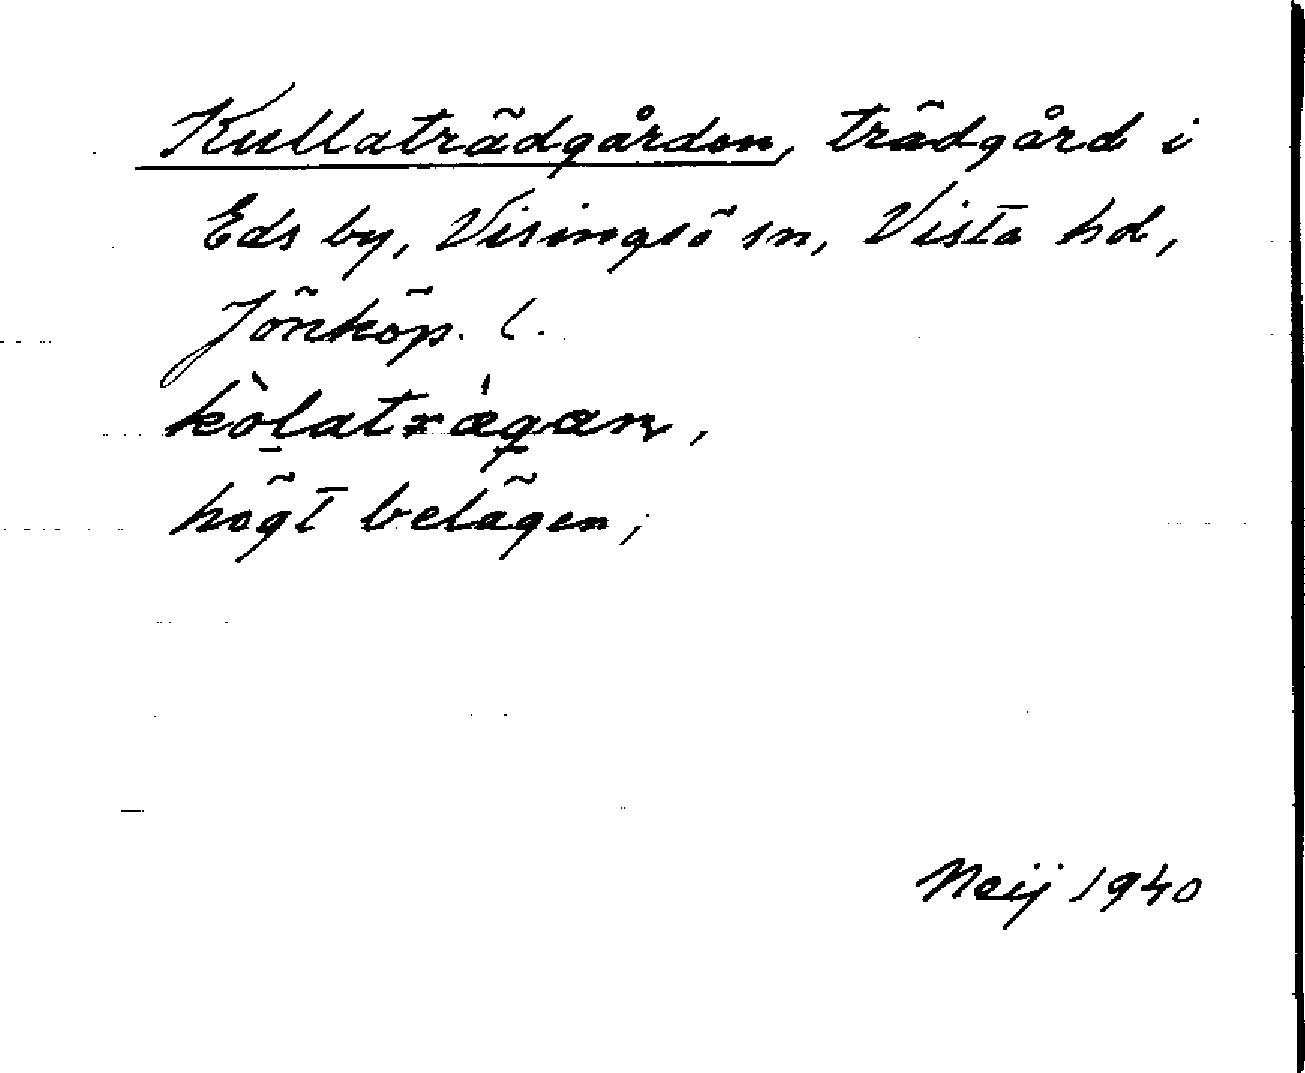 Kullaträdgården, trädgård i
Eds by, Visingsö sn, Vista hd,
Jönköp. l.
kòlatrágan,
högt belägen,
Neij 1940